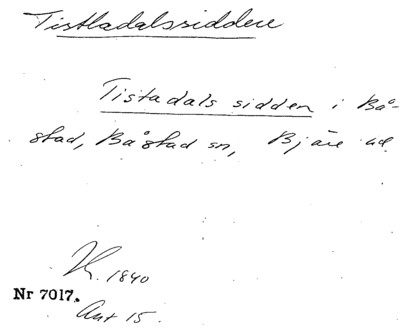 Tistladalssidden
Tistadals sidden i Bå-
stad, Båstad sn, Bjäre hd.
K. 1840
Nr 7017.
Ant 15.